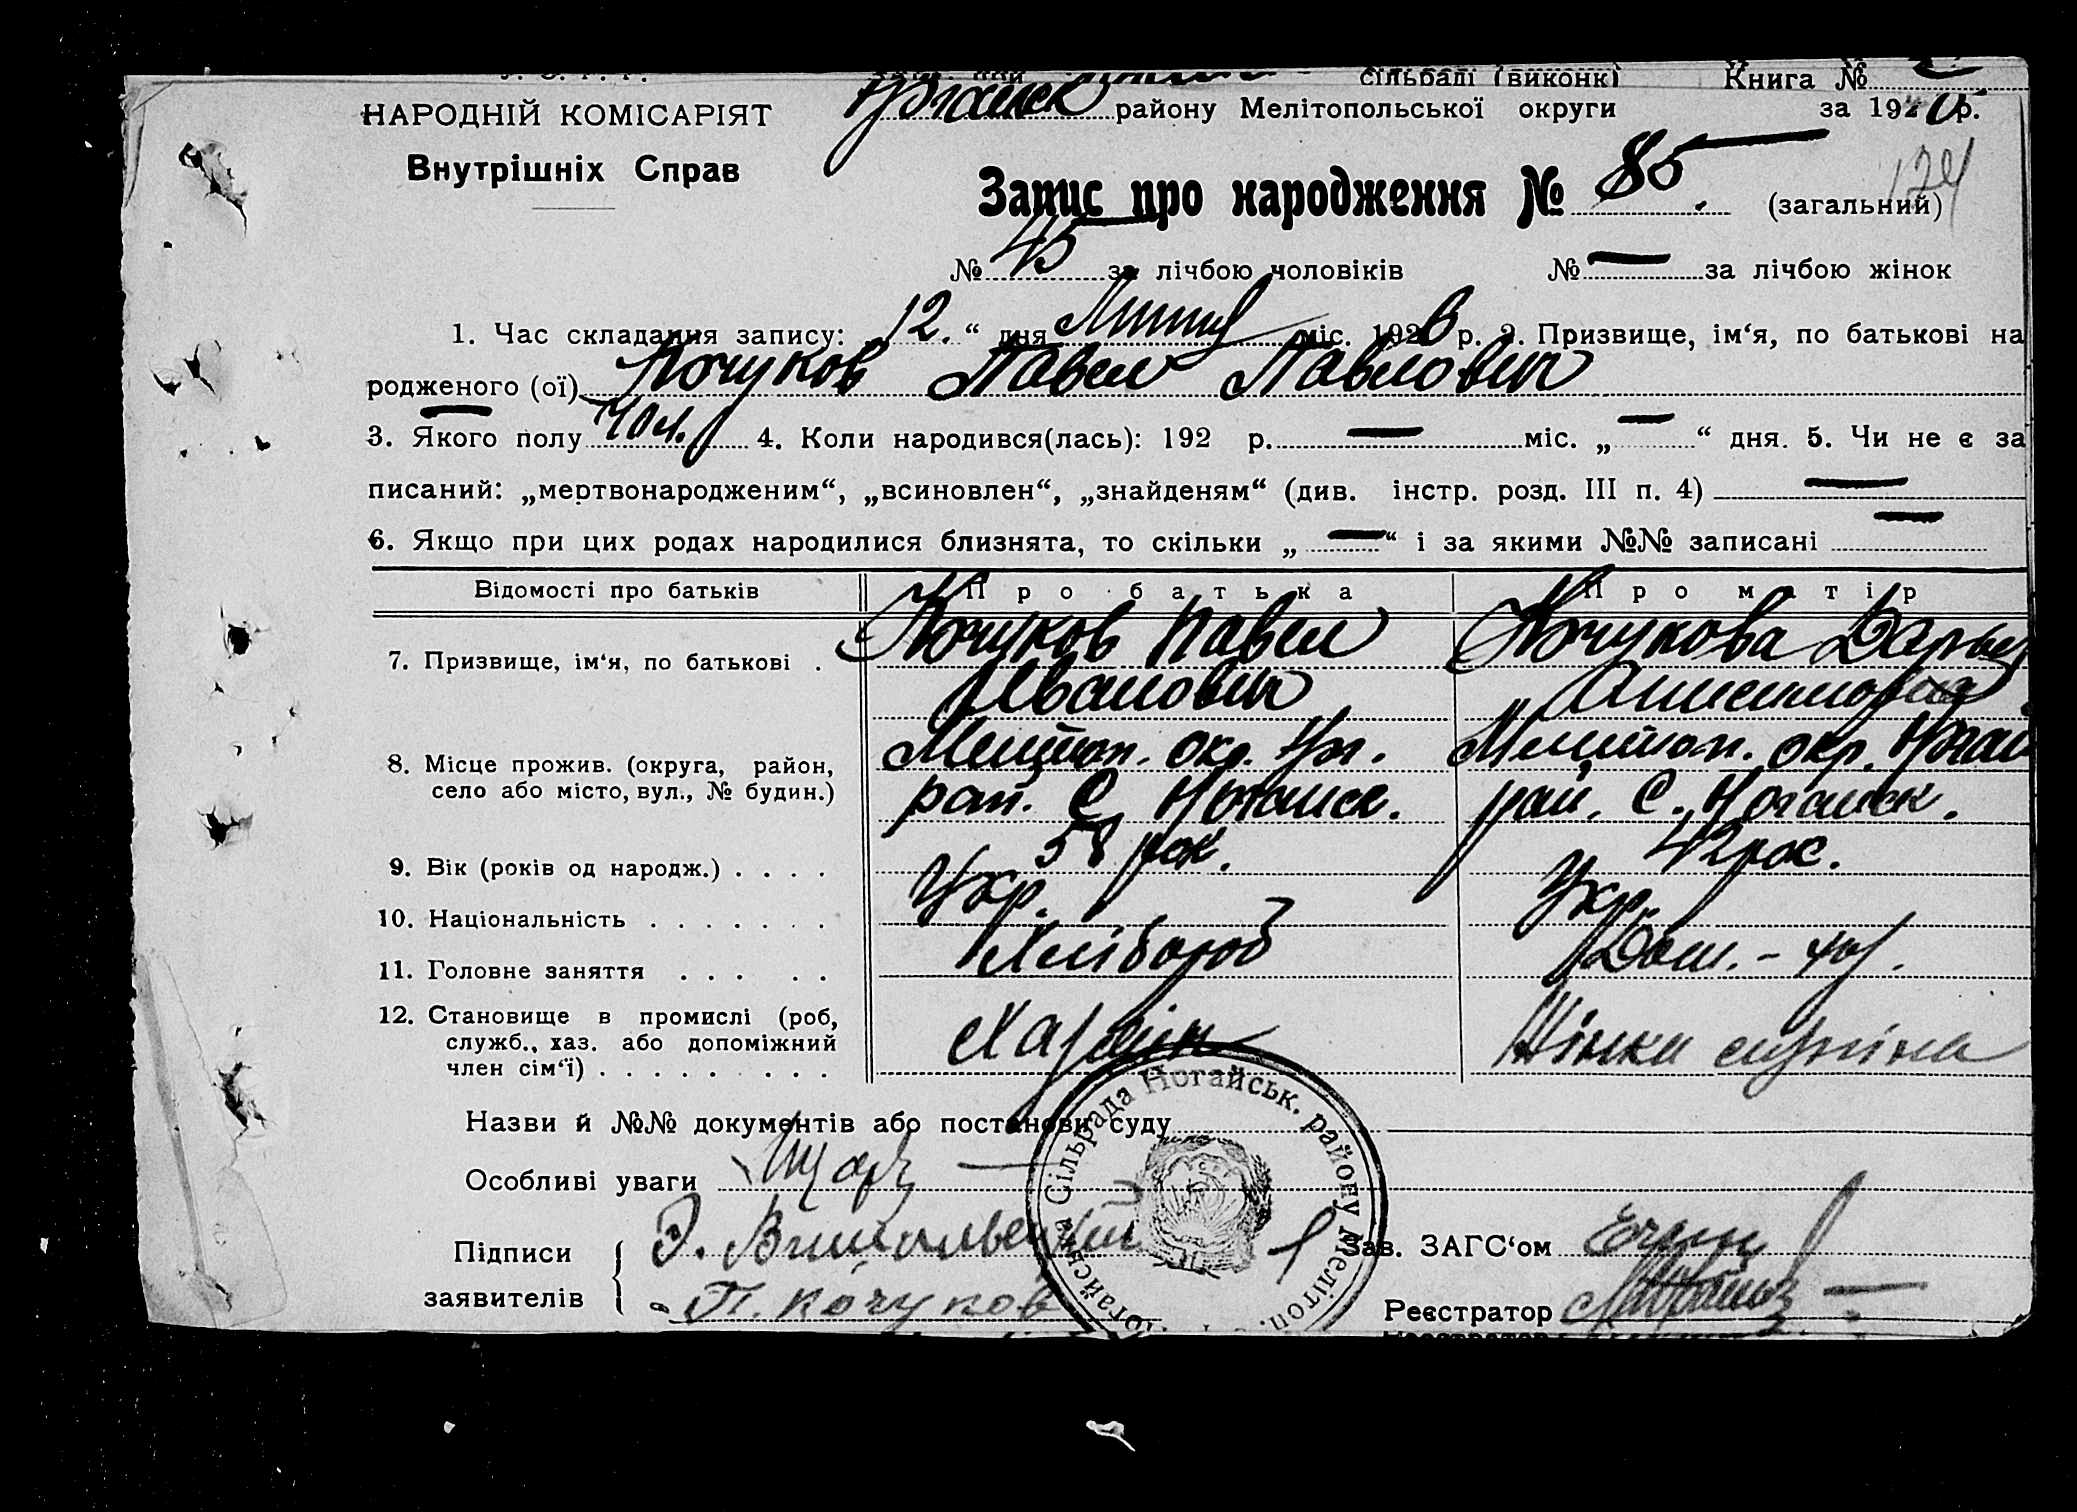 сільради (виконк) Книга №
Ногайск району Мелітопольської округи за 1926 р.
НАРОДНІЙ КОМІСАРІЯТ
Внутрішніх Справ
Запис про народження № 85 (загальний)
124
№ 45 за лічбою чоловіків № — за лічбою жінок
1. Час складання запису: 12 “ дня Липня міс. 1926 р. 2. Призвище, ім‘я, по батькові на
родженого (ої) Кочуков Павел Павлович
3. Якого полу чол. 4. Коли народився(лась): 192 р. — міс. „ — “ дня. 5. Чи не є за
писаний: „мертвонародженим“, „всиновлен“, „знайденям“ (див. інстр. розд. III п. 4) —
6. Якщо при цих родах народилися близнята, то скільки „ — “ і за якими №№ записані —
Відомості про батьків Про батька Про матір
7. Призвище, ім‘я, по батькові . Кочуков Павел Кочукова Дарья
Иванович
8. Місце прожив. (округа, район, Мелітоп. окр. Ног. Мелітоп. окр. Ногай
село або місто, вул., № будин.) рай. С. Ногайск. рай. С. Ногайск.
9. Вік (років од народж.) . . . . 58 рок. 42 рок.
10. Національність . . . . . . . Укр. Укр.
11. Головне заняття . . . . . Хлібороб Дом.-
12. Становище в промислі (роб, Хазяін Жінка
служб., хаз. або допоміжний
член сім‘ї) . . . . . . . . .
Назви й №№ документів або постанови суду
Особливі уваги
Підписи Зав. ЗАГС‘ом
заявителів П. Кочуков
Реєстратор
Ногайська Сільрада Ногайськ. району Мелітоп.